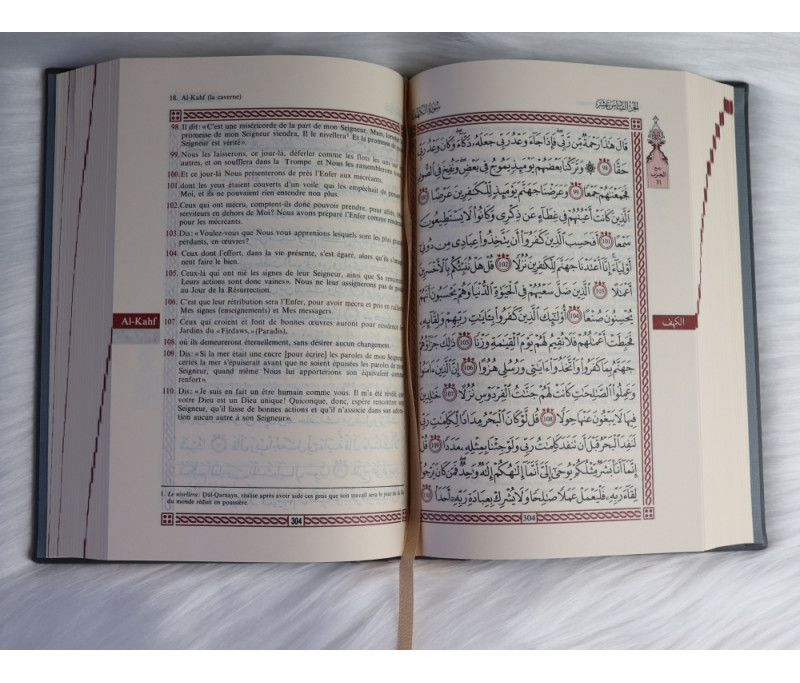 18. Al-Kahf (la caverne)
98. Il dit: «C'est une miséricorde de la part de mon Seigneur. Mais, lorsque la
promesse de mon Seigneur viendra, Il le nivellera¹. Et la promesse de mon
Seigneur est vérité».
99. Nous les laisserons, ce jour-là, déferler comme les flots les uns sur les
autres, et on soufflera dans la Trompe et Nous les rassemblerons
100. Et ce jour-là Nous présenterons de près l'Enfer aux mécréants,
101. dont les yeux étaient couverts d'un voile qui les empêchait de penser à
Moi, et ils ne pouvaient rien entendre non plus.
102. Ceux qui ont mécru, comptent-ils donc pouvoir prendre, pour alliés, Mes
serviteurs en dehors de Moi? Nous avons préparé l'Enfer comme résidence
pour les mécréants.
103. Dis: «Voulez-vous que Nous vous apprenions lesquels sont les plus grands
perdants, en œuvres?
104. Ceux dont l'effort, dans la vie présente, s'est égaré, alors qu'ils s'imaginent
nent faire le bien.
105. Ceux-là qui ont nié les signes de leur Seigneur, ainsi que Sa rencontre.
Leurs actions sont donc vaines». Nous ne leur assignerons pas de poids
au Jour de la Résurrection.
106. C'est que leur rétribution sera l'Enfer, pour avoir mécru et pris en raillerie
Mes signes (enseignements) et Mes messagers.
107. Ceux qui croient et font de bonnes œuvres auront pour résidence les
Jardins du «Firdaws,» (Paradis),
108. où ils demeureront éternellement, sans désirer aucun changement.
109. Dis: «Si la mer était une encre [pour écrire] les paroles de mon Seigneur,
certes la mer s'épuiserait avant que ne soient épuisées les paroles de mon
Seigneur, quand même Nous lui apporterions son équivalent comme
renfort».
110. Dis: «Je suis en fait un être humain comme vous. Il m'a été révélé que
votre Dieu est un Dieu unique! Quiconque, donc, espère rencontrer son
Seigneur, qu'il fasse de bonnes actions et qu'il n'associe dans son adora-
tion aucun autre à son Seigneur».
1. Le nivellera: Dûl-Qarnayn, réalise après avoir aidé ces gens que son travail sera le jour de la fin
du monde réduit en poussière.
304
Al-Kahf
الجزء السادس عشر
سورة الكهف
قَالَ هَٰذَا رَحْمَةٌ مِّن رَّبِّي فَإِذَا جَآءَ وَعْدُ رَبِّي جَعَلَهُۥ دَكَّآءَ وَكَانَ وَعْدُ رَبِّي
حَقًّا ٩٨ ۞ وَتَرَكْنَا بَعْضَهُمْ يَوْمَئِذٍ يَمُوجُ فِي بَعْضٍ وَنُفِخَ فِي ٱلصُّورِ
فَجَمَعْنَٰهُمْ جَمْعًا ٩٩ وَعَرَضْنَا جَهَنَّمَ يَوْمَئِذٍ لِّلْكَٰفِرِينَ عَرْضًا ١٠٠
ٱلَّذِينَ كَانَتْ أَعْيُنُهُمْ فِي غِطَآءٍ عَن ذِكْرِي وَكَانُوا۟ لَا يَسْتَطِيعُونَ
سَمْعًا ١٠١ أَفَحَسِبَ ٱلَّذِينَ كَفَرُوٓا۟ أَن يَتَّخِذُوا۟ عِبَادِي مِن دُونِيٓ
أَوْلِيَآءَ إِنَّآ أَعْتَدْنَا جَهَنَّمَ لِلْكَٰفِرِينَ نُزُلًا ١٠٢ قُلْ هَلْ نُنَبِّئُكُم بِٱلْأَخْسَرِينَ
أَعْمَٰلًا ١٠٣ ٱلَّذِينَ ضَلَّ سَعْيُهُمْ فِي ٱلْحَيَوٰةِ ٱلدُّنْيَا وَهُمْ يَحْسَبُونَ أَنَّهُمْ
يُحْسِنُونَ صُنْعًا ١٠٤ أُو۟لَٰٓئِكَ ٱلَّذِينَ كَفَرُوا۟ بِـَٔايَٰتِ رَبِّهِمْ وَلِقَآئِهِۦ
فَحَبِطَتْ أَعْمَٰلُهُمْ فَلَا نُقِيمُ لَهُمْ يَوْمَ ٱلْقِيَٰمَةِ وَزْنًا ١٠٥ ذَٰلِكَ جَزَآؤُهُمْ
جَهَنَّمُ بِمَا كَفَرُوا۟ وَٱتَّخَذُوٓا۟ ءَايَٰتِي وَرُسُلِي هُزُوًا ١٠٦ إِنَّ ٱلَّذِينَ ءَامَنُوا۟
وَعَمِلُوا۟ ٱلصَّٰلِحَٰتِ كَانَتْ لَهُمْ جَنَّٰتُ ٱلْفِرْدَوْسِ نُزُلًا ١٠٧ خَٰلِدِينَ
فِيهَا لَا يَبْغُونَ عَنْهَا حِوَلًا ١٠٨ قُل لَّوْ كَانَ ٱلْبَحْرُ مِدَادًا لِّكَلِمَٰتِ رَبِّي
لَنَفِدَ ٱلْبَحْرُ قَبْلَ أَن تَنفَدَ كَلِمَٰتُ رَبِّي وَلَوْ جِئْنَا بِمِثْلِهِۦ مَدَدًا ١٠٩ قُلْ
إِنَّمَآ أَنَا۠ بَشَرٌ مِّثْلُكُمْ يُوحَىٰٓ إِلَيَّ أَنَّمَآ إِلَٰهُكُمْ إِلَٰهٌ وَٰحِدٌ فَمَن كَانَ يَرْجُوا۟
لِقَآءَ رَبِّهِۦ فَلْيَعْمَلْ عَمَلًا صَٰلِحًا وَلَا يُشْرِكْ بِعِبَادَةِ رَبِّهِۦٓ أَحَدًۢا ١١٠
304
ربع
الحزب
٣١
الكهف